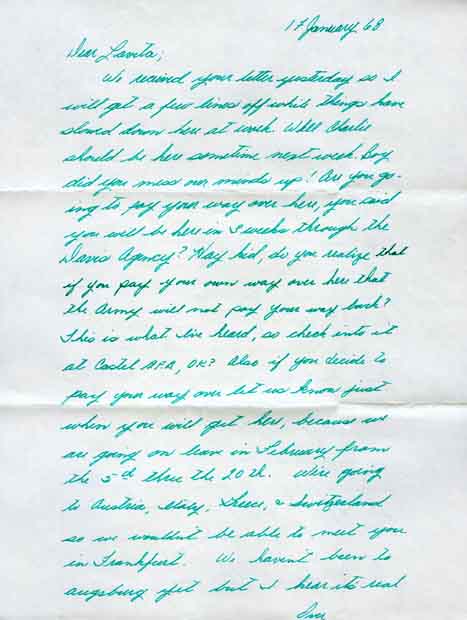 17 January 68
Dear Lavita;
We received your letter yesterday so I
will get a few lines off while things have
slowed down here at work. Well Charlie
should be here sometime next week. Boy
did you mess our minds up! Are you go-
ing to pay your way over here, you said
you will be here in 3 weeks through the
Davis Agency? Hay kid, do you realize that
if you pay your own way over here that
the Army will not pay your way back?
This is what I've heard, so check into it
at Castel A.F.A, OK? Also if you decide to
pay your way over let us know just
when you will get here, because we
are going on leave in February from
the 5th thru the 20th. We're going
to Austria, Italy, Greece, & Switzerland
so we wouldn't be able to meet you
in Frankfurt. We haven't been to
augsburg yet but I hear it's real